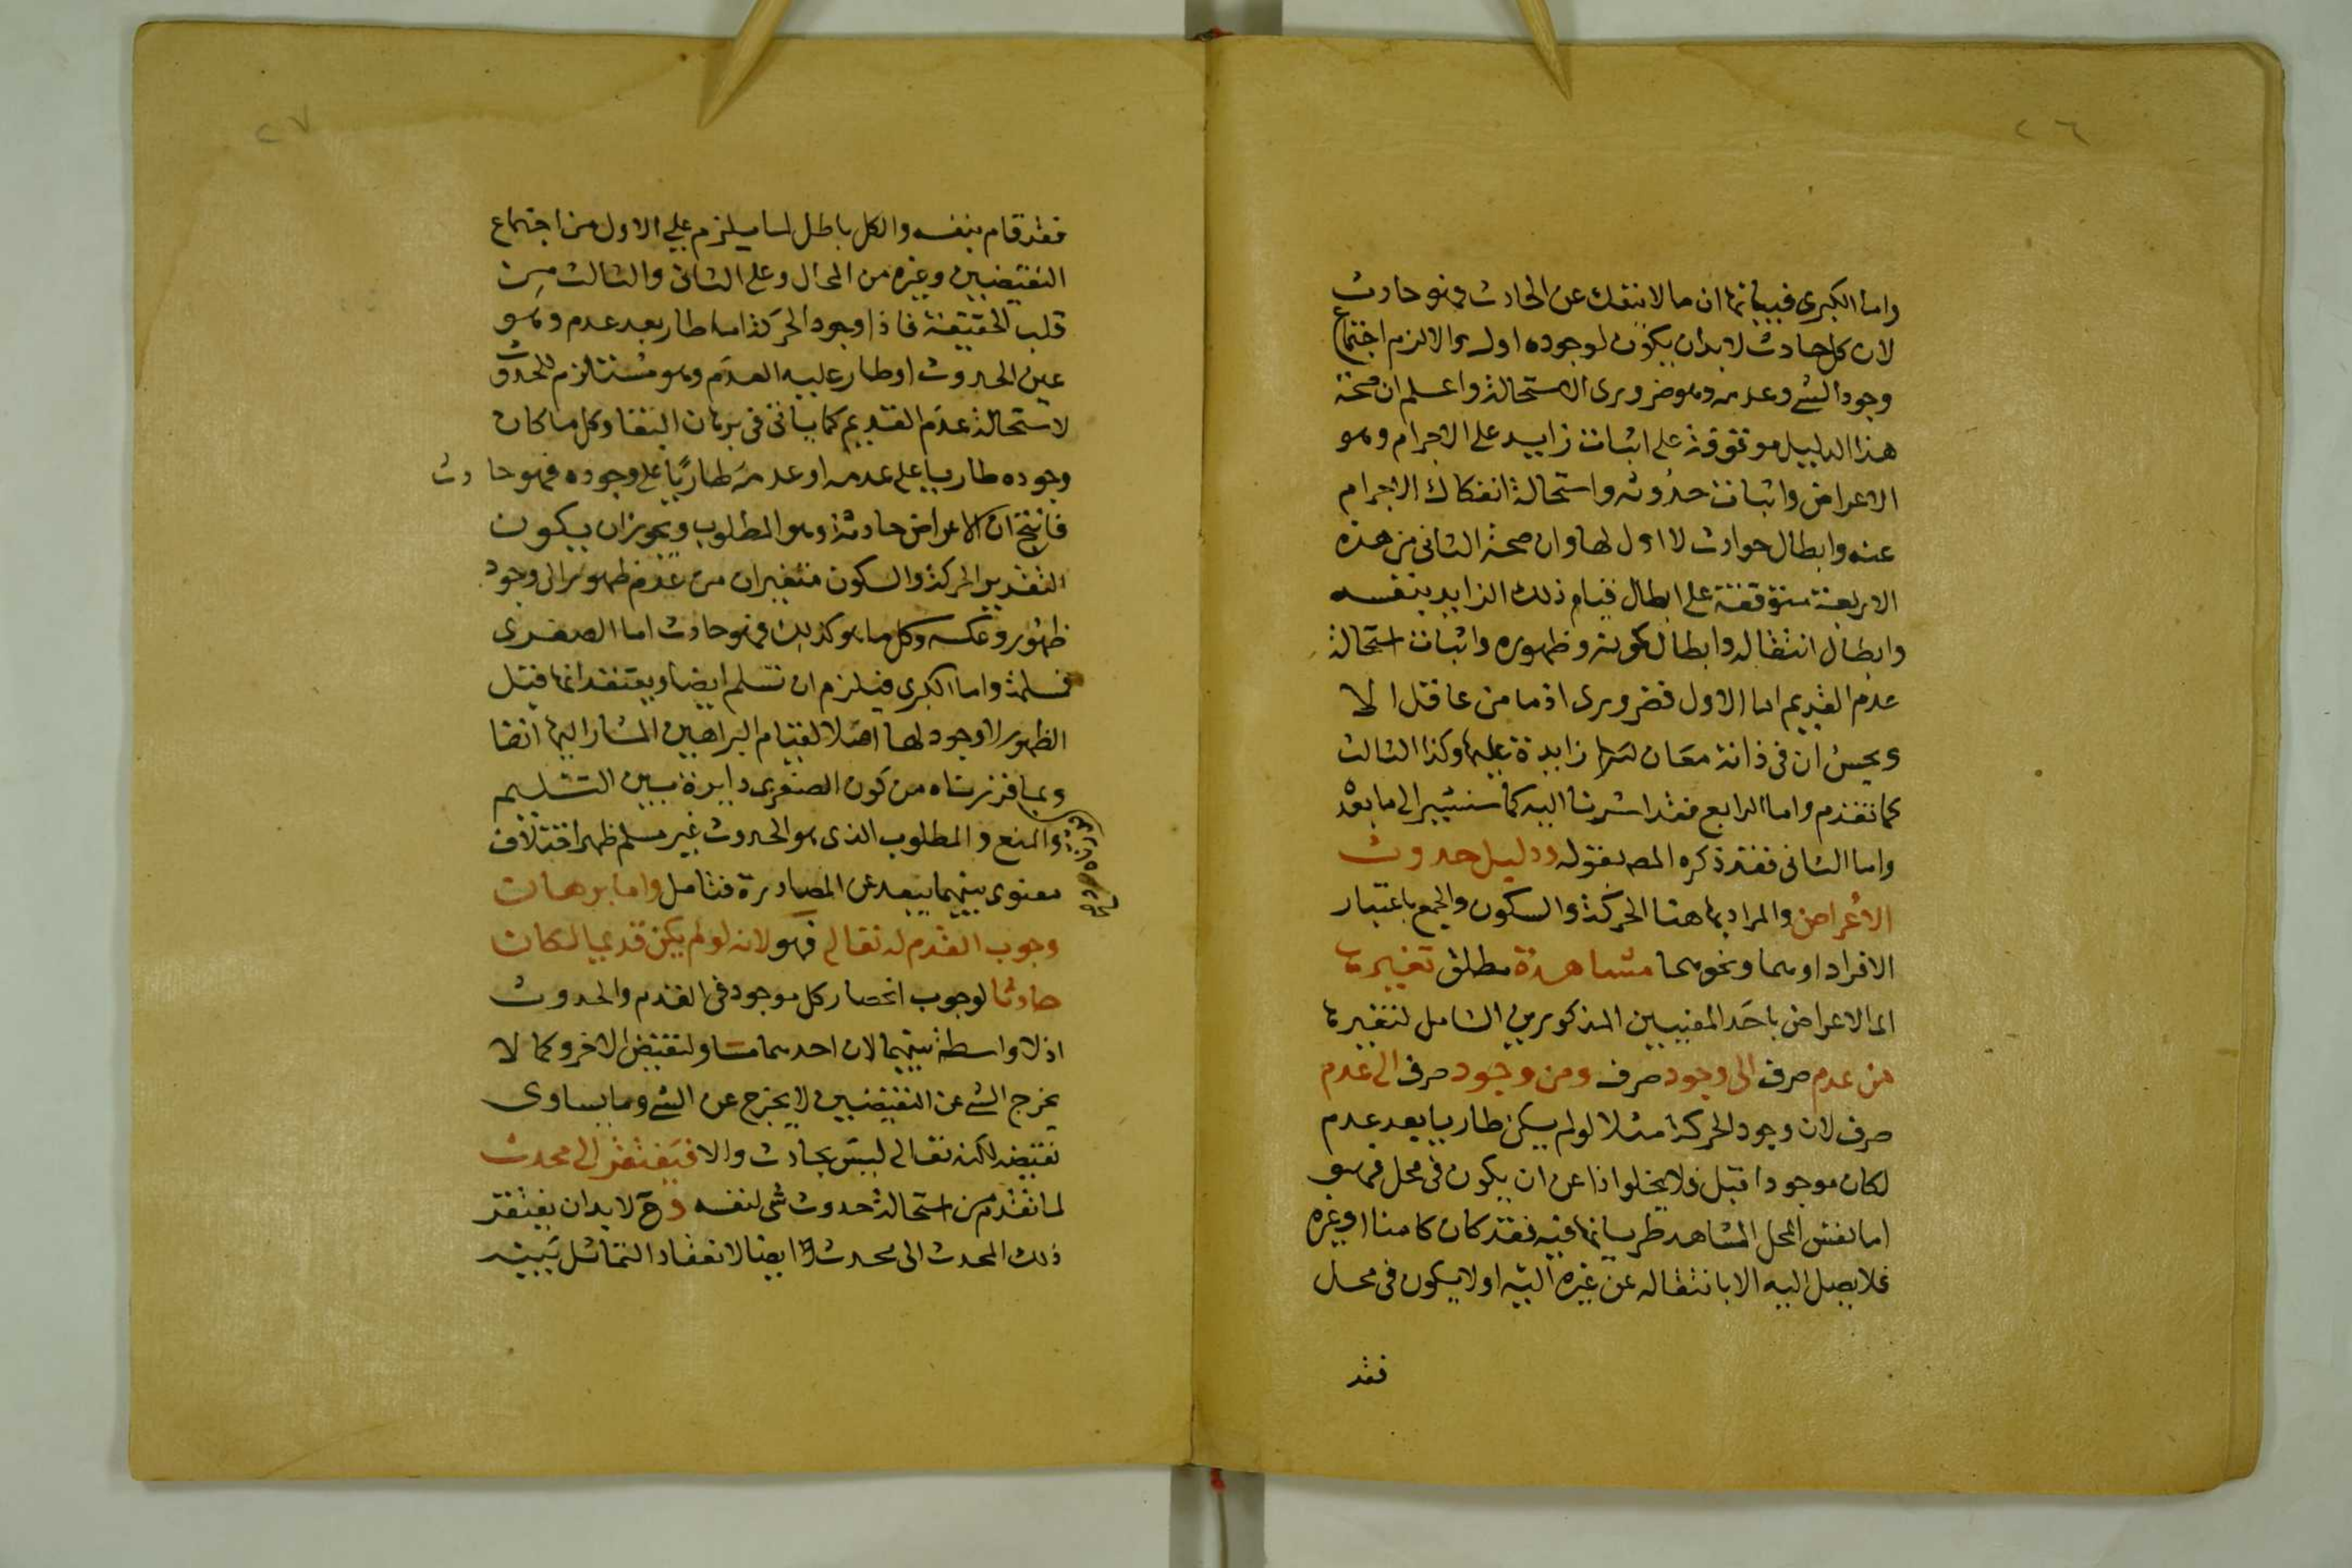 ٢٦
واما الكبرى فبيانها ان ما لا ينفك عن الحادث فهو حادث
لان كل حادث لابد ان يكون لوجوده اول والا لزم اجتماع
وجود الشے وعدمه وهو ضرورى الاستحالة واعلم ان صحة
هذا الدليل موتوقفة على اثبات زايد على الاجرام وهو
الاعراض واثبات حدوثه واستحالة انفكاك الاجرام
عنه وابطال حوادث لا اول لها وان صحة الثانى من هذه
الاربعة متوقفة على ابطال قيام ذلك الزايد بنفسه
وابطال انتقاله وابطال كونه وظهوره واثبات استحالة
عدم القديم اما الاول فضرورى اذ ما من عاقل الا
ويحس ان فى ذاته معان زايدة عليها وكذا الثالث
كما تقدم واما الرابع فقد اشرنا اليه كما سنشير الى ما بعد
واما الثانى فقد ذكره المصـ بقوله ودليل حدوث
الأعراض والمراد بها هنا الحركة والسكون والجمع باعتبار
الافراد او هما ونحوهما مشاهدة مطلق تغيرها
اى الاعراض باحد المعنيين المذكورين الشامل لتغيرها
من عدم صرف الى وجود صرف ومن وجود صرف الى عدم
صرف لان وجود الحركة مثلا لو لم يكن طاريا بعد عدم
لكان موجودا قبل فلا يخلوا اذا عن ان يكون فى محل فهو
اما نفس المحل المشاهد طريانها فيه فقد كان كامنا او غيره
فلا يصل اليه الا بانتقاله عن غيره اليه او لا يكون فى محل
فقد
٢٧
فقد قام بنفسه والكل باطل لما يلزم على الاول من اجتماع
النقيضين وغيره من المحال وعلى الثانى والثالث من
قلب الحقيقة فاذا وجود الحركة اما طار بعد عدم وهو
عين الحدوث او طار عليه العدم وهو مستلزم للحدوث
لاستحالة عدم القديم كما ياتى فى برهان البقا وكل ما كان
وجوده طاريا على عدمه او عدمه طاريًا على وجوده فهو حادث
فانتج ان الاعراض حادثة وهو المطلوب ويجوز ان يكون
التقدير الحركة والسكون متغيران من عدم ظهور الى وجود
ظهور وعكسه وكل ما هو كذلك فهو حادث اما الصغرى
فسلمة واما الكبرى فيلزم ان تسلم ايضا ويعتقد انها قبل
الظهور لا وجود لها اصلا لقيام البراهين المشار اليها انفا
وبما قررناه من كون الصغرى دايرة بين التسليم
والمنع و المطلوب الذى هو الحدوث غير مسلم ظهر اختلاف
معنوى بينهما يبعد عن المصادرة فتامل واما برهان
وجوب القدم له تعالى فهو لانه لو لم يكن قديما لكان
حادثا لوجوب انحصار كل موجود فى القدم والحدوث
اذ لا واسطة بينهما لان احدهما مساو لنقيض الاخر وكما لا
يخرج الشے عن النقيضين لا يخرج عن الشے وما يساوى
نقيضه لكنه تعالى ليس بحادث والا فيفتقر الى محدث
لما تقدم من استحالة حدوث شى لنفسه وح لابد ان يفتقر
ذلك المحدث الى محدث ايضا لانعقاد التماثل بينه